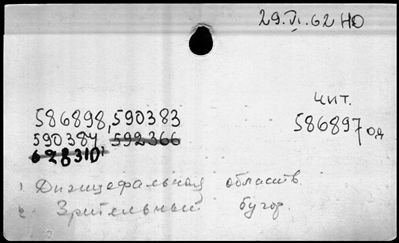 29.VI.62 НО
586898, 590383
чит.
590384, 592366
586897 од
628310
1. Диэнцефальная область
2. Зрительный бугор.